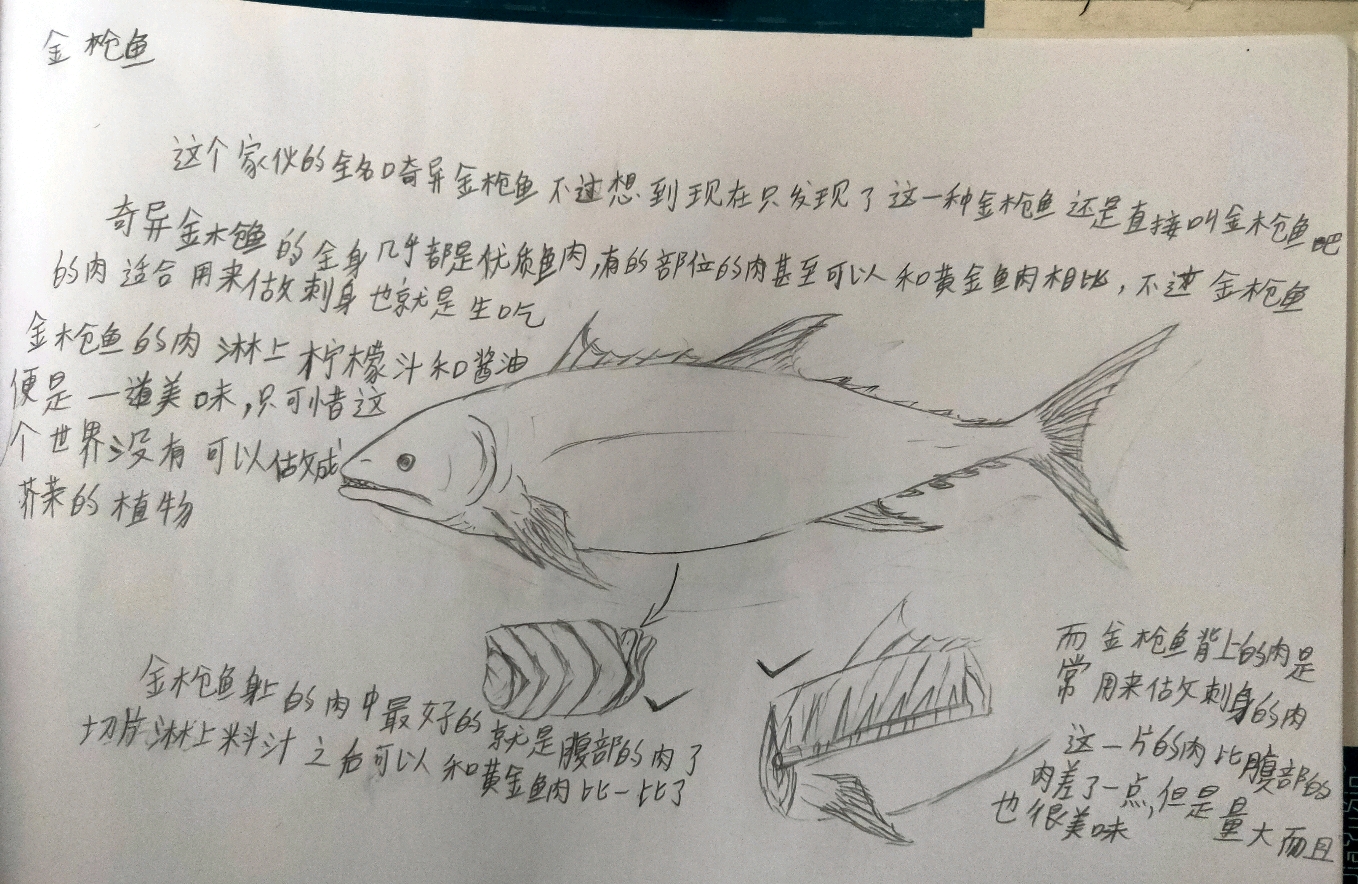 金枪鱼
这个家伙的全名叫奇异金枪鱼 不过想到现在只发现了这一种金枪鱼还是直接叫金枪鱼吧
奇异金枪鱼的全身几乎都是优质鱼肉,有的部位的肉甚至可以和黄金鱼肉相比,不过金枪鱼
的肉适合用来做刺身也就是生吃
金枪鱼的肉淋上柠檬汁和酱油
便是一道美味,只可惜这
个世界没有可以做成
芥末的植物
金枪鱼身上的肉中最好的就是腹部的肉了
切片淋上料汁之后可以和黄金鱼肉比一比了
而金枪鱼背上的肉是
常用来做刺身的肉
这一片的肉比腹部的
肉差了一点,但是量大而且
也很美味